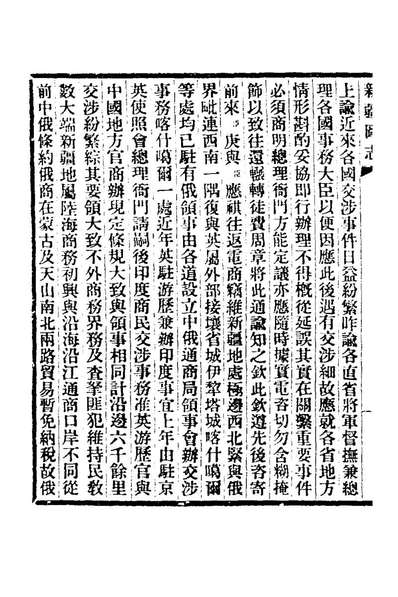 新疆圖志
上諭近來各國交涉事件日益紛繁昨諭各直省將軍督撫兼總
理各國事務大臣以便因應此後遇有交涉細故應就各省地方
情形斟酌妥協即行辦理不得槪從延誤其實在關繫重要事件
必須商明總理衙門方能定議亦應隨時據實電咨切勿含糊掩
飾以致往還輾轉徒費周章將此通諭知之欽此欽遵先後咨寄
前來臣庚與臣應祺往返電商竊維新疆地處極邊西北緊與俄
界毗連西南一隅復與英屬外部接壤省城伊犂塔城喀什噶爾
等處均已駐有俄領事由各道設立中俄通商局領事會辦交涉
事務喀什噶爾一處近年英駐游歷兼辦印度事宜上年由駐京
英使照會總理衙門請嗣後印度商民交涉事務准英游歷官與
中國地方官商辦現定條規大致與領事相同計沿邊六千餘里
交涉紛繁綜其要領大致不外商務界務及查拏匪犯維持民教
數大端新疆地屬陸海商務初興與沿海沿江通商口岸不同從
前中俄條約俄商在蒙古及天山南北兩路貿易暫免納稅故俄